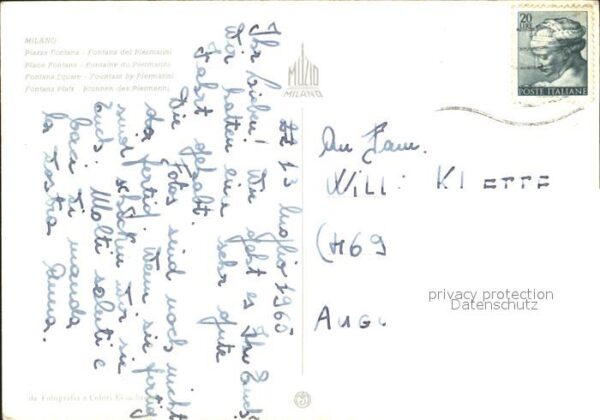 MILANO
Piazza Fontana - Fontana del Piermarini
Place Fontana - Fontaine du Piermarini
Fontana Square - Fountain by Piermarini
Fontana Platz - Brunnen des Piermarini
MUZIO
MILANO
20
LIRE
POSTE ITALIANE
13 luglio 1965
Ihr lieben! Wie geht es Euch?
Wir hatten eine sehr gute
Fahrt gehabt.
Die Fotos sind noch nicht
da fertig. Wenn sie fertig
sind schicken wir sie
Euch. Molti saluti e
baci Ti manda
la Vostra
Anna.
An Fam.
WILLI
(H69
AUG
privacy protection
Datenschutz
da Fotografia a Colori